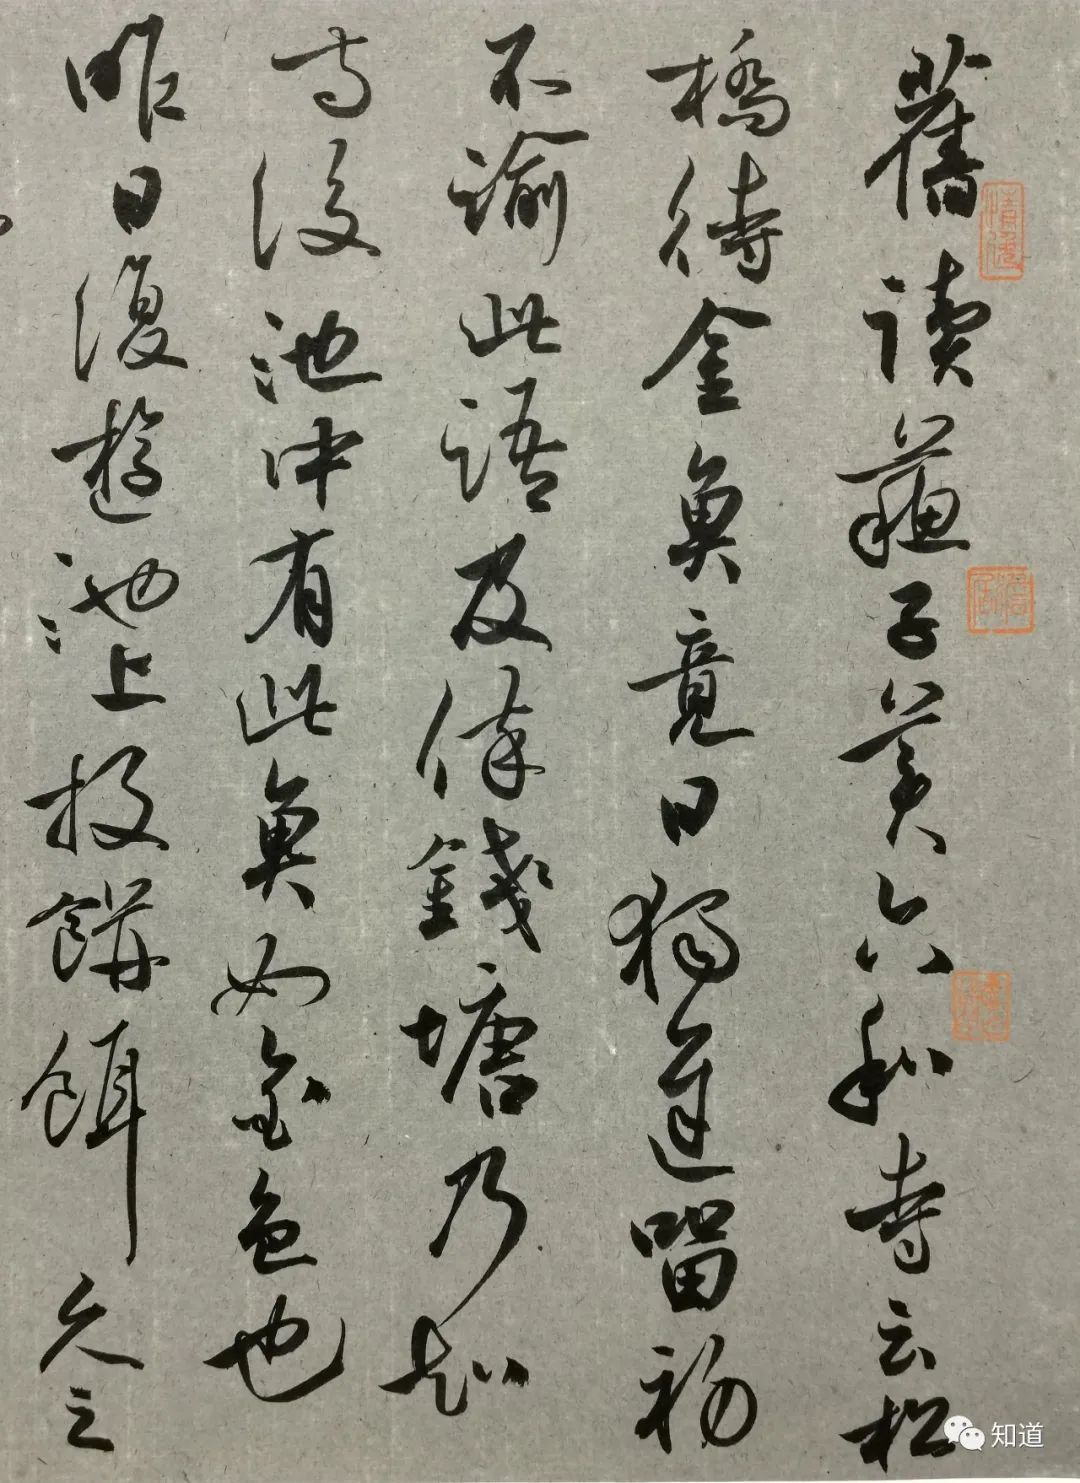 舊讀蘇子美六和寺云松
橋待金魚竟日獨遲留初
不諭此語及倅錢塘乃知
寺後池中有此魚如金色也
昨日復遊池上投餅餌久之
知道